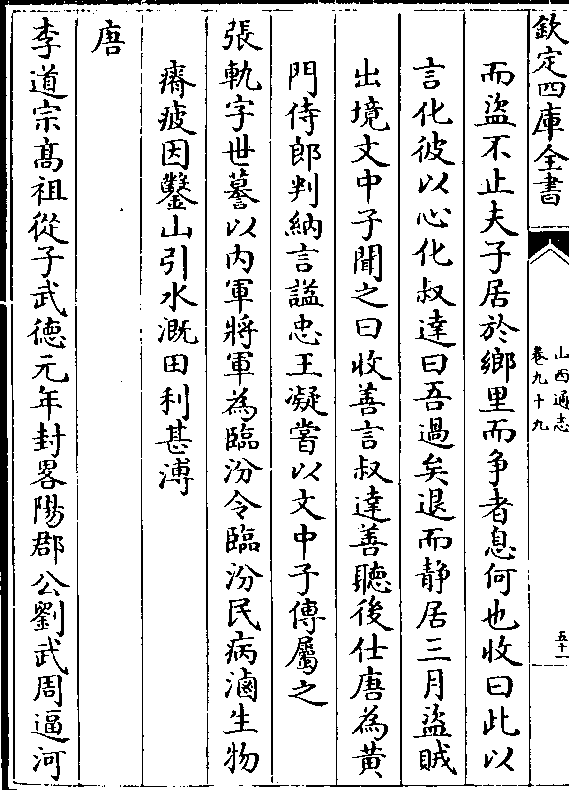 欽定四庫全書
山西通志
卷九十九
五十一
而盜不止夫子居於鄉里而爭者息何也收曰此以
言化彼以心化叔達曰吾過矣退而静居三月盜賊
出境文中子聞之曰收善言叔達善聽後仕唐為黄
門侍郎判納言諡忠王凝嘗以文中子傳屬之
張軌字世謩以内軍將軍為臨汾令臨汾民病滷生物
瘠疲因鑿山引水溉田利甚溥
唐
李道宗髙祖從子武德元年封畧陽郡公劉武周逼河